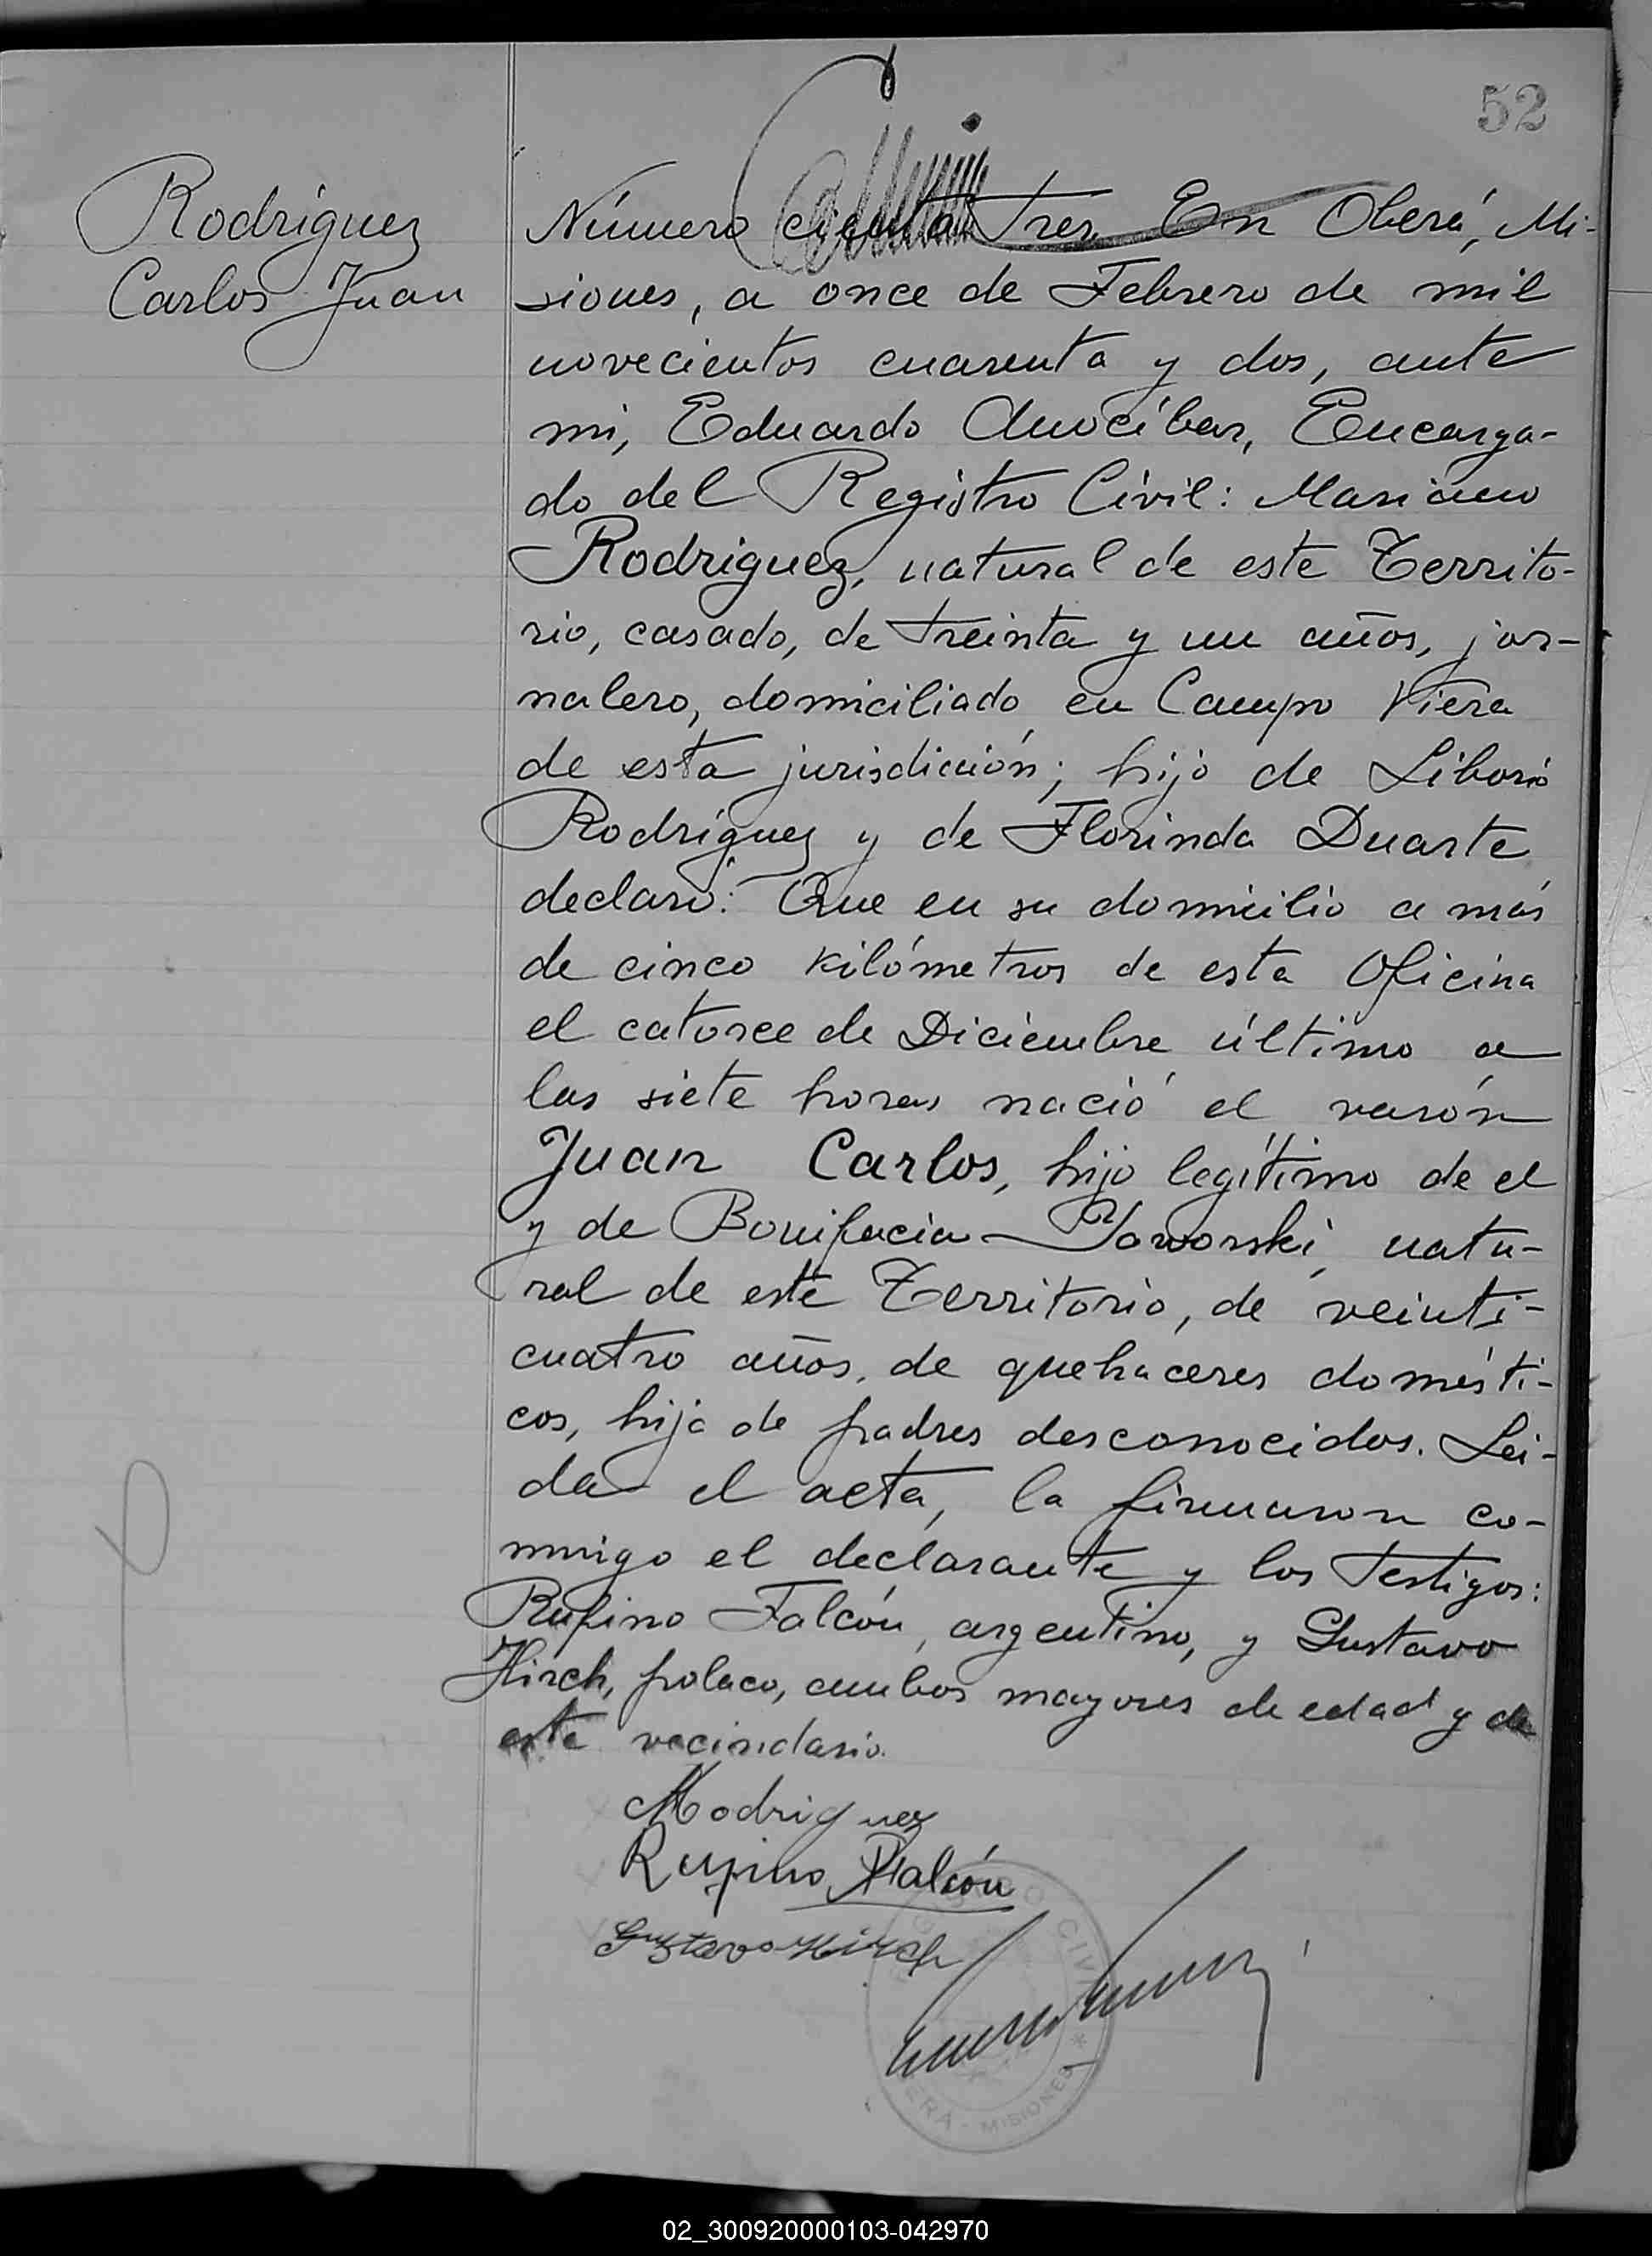 52
Rodríguez
Carlos Juan
Número ciento tres. En Oberá, Mi-
siones, a once de Febrero de mil
novecientos cuarenta y dos, ante
mi, Eduardo Anocíbar, Encarga-
do del Registro Civil: Mariano
Rodríguez, natural de este Territo-
rio, casado, de treinta y un años, jor-
nalero, domiciliado en Campo Viera
de esta jurisdicción; hijo de Liborio
Rodríguez y de Florinda Duarte
declaró: Que en su domicilio a más
de cinco kilómetros de esta Oficina
el catorce de Diciembre último a
las siete horas nació el varón
Juan Carlos, hijo legítimo de el
y de Bonifacia Jaworski, natu-
ral de este Territorio, de veinti-
cuatro años, de quehaceres domésti-
cos, hija de padres desconocidos. Leí-
da el acta, la firmaron co-
nmigo el declarante y los testigos:
Rufino Falcón, argentino, y Gustavo
Hirch, polaco, ambos mayores de edad y de
este vecindario.
MRodriguez
Rufino Falcón
Gustavo Hirch
CIVIL
OBERÁ - MISIONES *
02_300920000103-042970